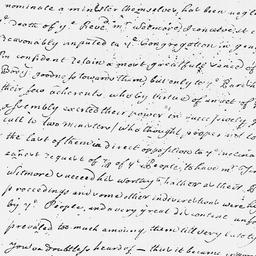 nominate a minister themselves, has been negle
ye Death of ye Revd mr Wadmore, I conceive it
reasonably imputed to ye Congregation in gene
I'm confident retain a most greatful sense of
Bard's goodness towards them but only to ye Bard
their few adherents who by virtue of an act of
Assembly exerted their power in successively
call to two ministers who thought proper not to
the last of them in direct opposition to ye inclina
earnest request of 7/8 of ye People, to have mr
Witmore succeed his worthy father at that
proceedings and some other indiscretions were
by ye People, and a very great discontent unfo
prevailed too much among them till very lately
you've doubtless heard of — thus it became